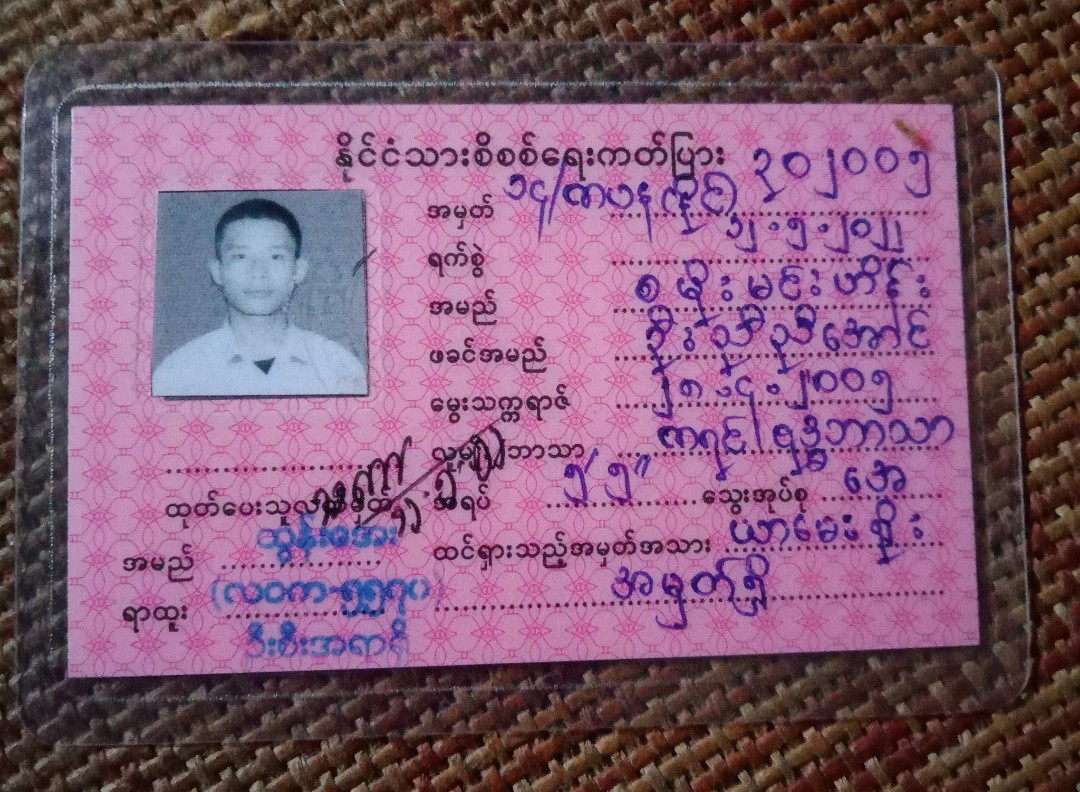 နိုင်ငံသားစိစစ်ရေးကတ်ပြား
အမှတ် ၁၄/ကပန(နိုင်) ၃၀၂၀၀၅
ရက်စွဲ ၁၂.၅.၂၀၂၂
အမည် စဖိုးမင်းဟိန်း
ဖခင်အမည် ဦးညီညီအောင်
မွေးသက္ကရာဇ် ၂၈.၄.၂၀၀၅
လူမျိုး/ဘာသာ ကရင်|ဗုဒ္ဓဘာသာ
အရပ် ၅'၅" သွေးအုပ်စု အေ
ထင်ရှားသည့်အမှတ်အသား ယာမေးရိုး
အမှတ်ရှိ
ထုတ်ပေးသူလက်မှတ်
အမည် ထွန်းအေး
(လဝက-၅၅၇၀)
ရာထူး ဦးစီးအရာရှိ